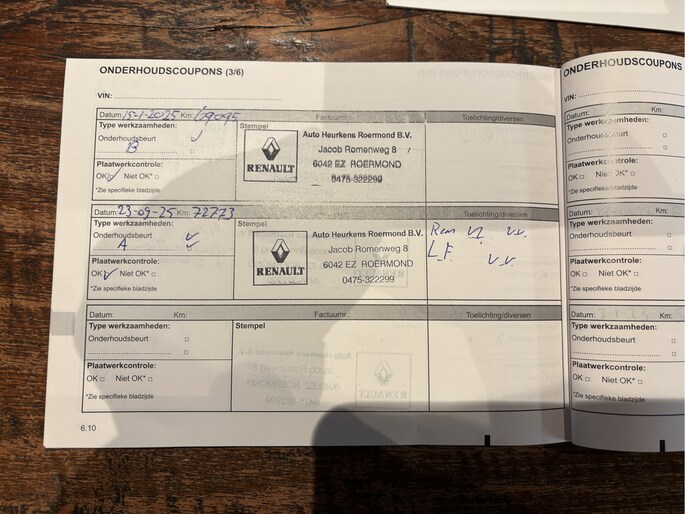 ONDERHOUDSCOUPONS (3/6)
VIN:
Datum: 15-1-2025 Km: Factuurnr. Toelichting/diversen
Type werkzaamheden:
Onderhoudsbeurt
B
Plaatwerkcontrole:
OK Niet OK*
*Zie specifieke bladzijde
Stempel
RENAULT
Auto Heurkens Roermond B.V.
Jacob Romenweg 8
6042 EZ ROERMOND
0475-322299
Datum: 23-09-25 Km: 72773 Factuurnr. Toelichting/diversen
Type werkzaamheden:
Onderhoudsbeurt
A
Plaatwerkcontrole:
OK Niet OK*
*Zie specifieke bladzijde
Stempel
RENAULT
Auto Heurkens Roermond B.V.
Jacob Romenweg 8
6042 EZ ROERMOND
0475-322299
Rem Vl. V.V.
V.V.
Datum: Km: Factuurnr. Toelichting/diversen
Type werkzaamheden:
Onderhoudsbeurt
Plaatwerkcontrole:
OK Niet OK*
*Zie specifieke bladzijde
Stempel
6.10
ONDERHOUDSCOUPONS
VIN:
Datum: Km:
Type werkzaamheden:
Onderhoudsbeurt
Plaatwerkcontrole:
OK Niet OK*
*Zie specifieke bladzijde
Datum: Km:
Type werkzaamheden:
Onderhoudsbeurt
Plaatwerkcontrole:
OK Niet OK*
*Zie specifieke bladzijde
Datum: Km:
Type werkzaamheden:
Onderhoudsbeurt
Plaatwerkcontrole:
OK Niet OK*
*Zie specifieke bladzijde